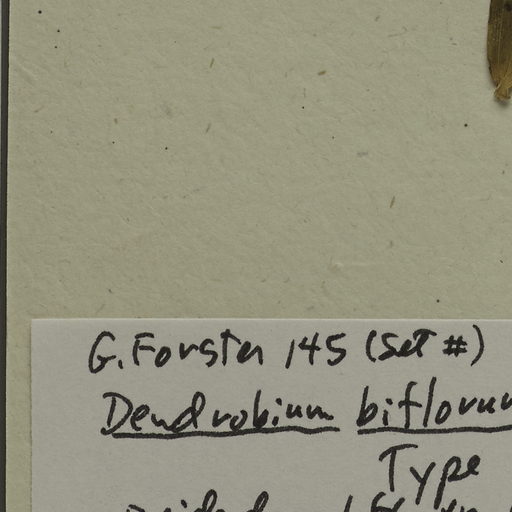 G. Forster 145 (Set #)
Dendrobium biflorum
Type